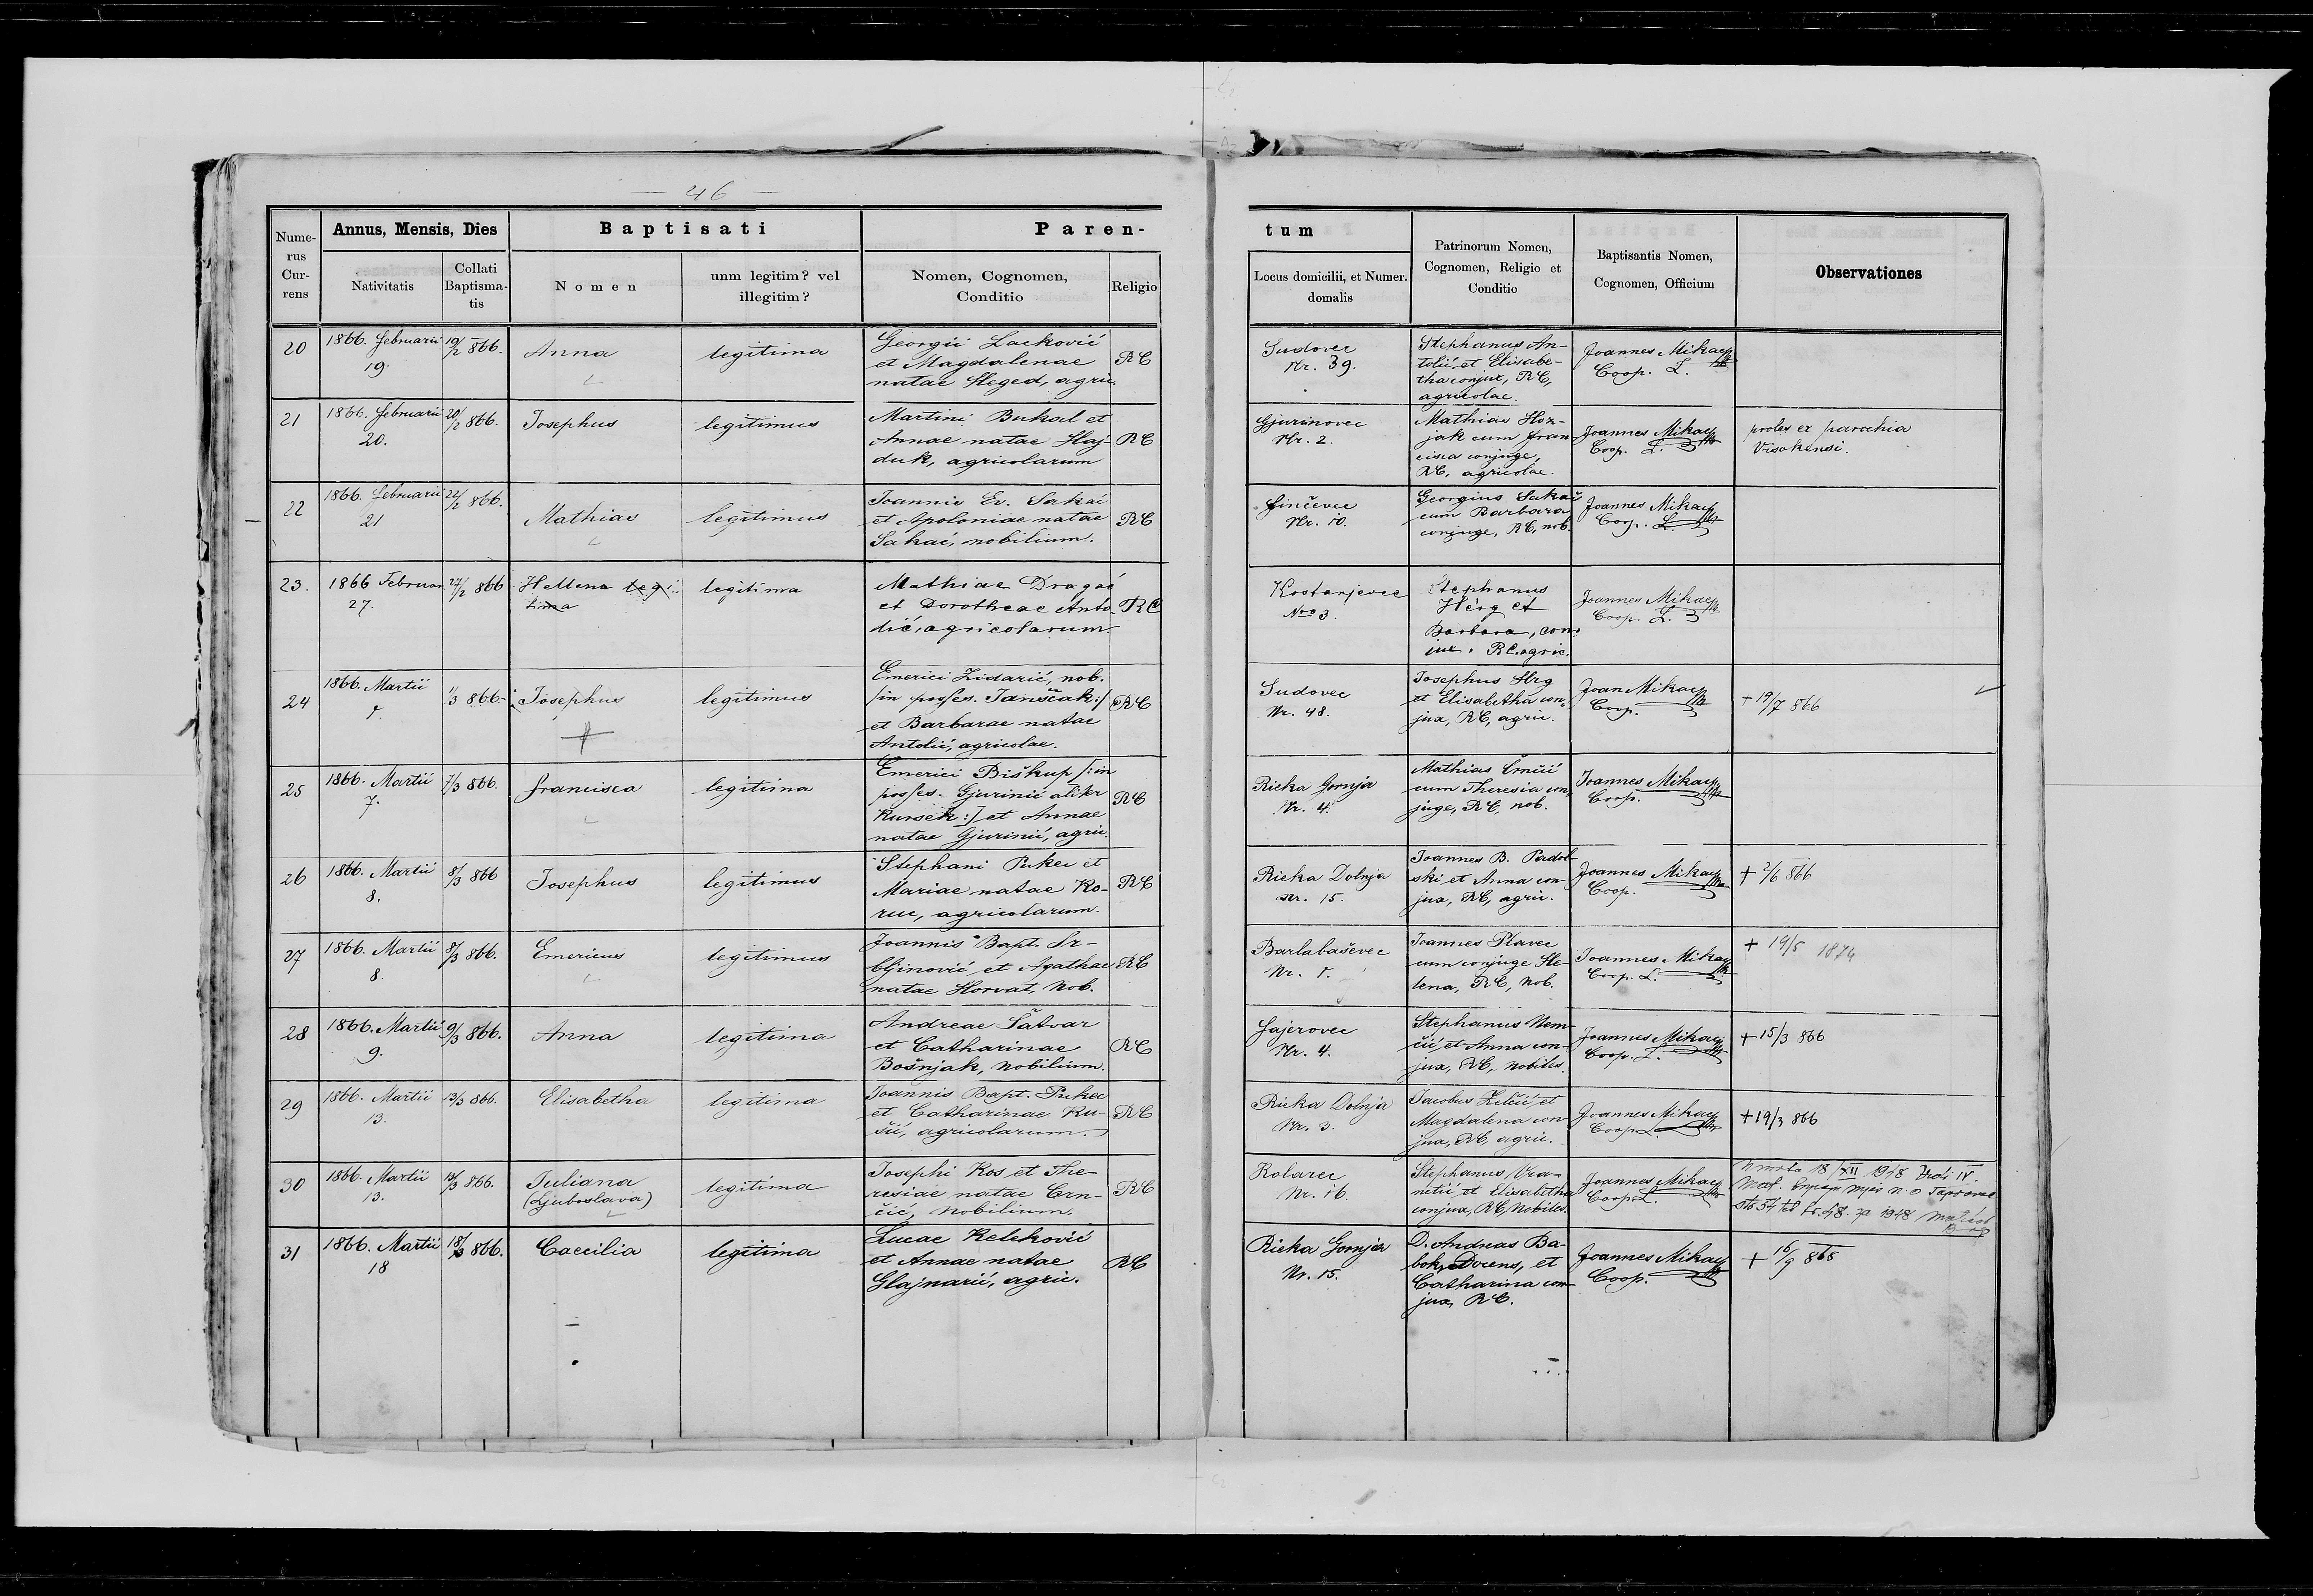 — 46 —
Nume-
rus
Cur-
rens
Annus, Mensis, Dies
Nativitatis
Collati
Baptisma-
tis
Baptisati
Nomen
unm legitim? vel
illegitim?
Paren-
Nomen, Cognomen,
Conditio
Religio
tum
Locus domicilii, et Numer.
domalis
Patrinorum Nomen,
Cognomen, Religio et
Conditio
Baptisantis Nomen,
Cognomen, Officium
Observationes
20
1866. Februarii
19.
19/2 866.
Anna
legitima
Georgii Lacković
et Magdalenae
natae Heged, agric.
RC
Sudovec
Nr. 39.
Stephanus An-
tolić, et Elisabe-
tha conjux, RC,
agricolae.
Joannes Mikac
Coop. L.
21
1866. Februarii
20.
20/2 866.
Josephus
legitimus
Martini Bukal et
Annae natae Haj-
duk, agricolarum
RC
Gjurinovec
Nr. 2.
Mathias Hor-
jak cum Fran-
cisca conjuge,
RC, agricolae.
Joannes Mikac
Coop. L.
proles ex parochia
Visokensi.
22
1866. Februarii
21
22/2 866.
Mathias
legitimus
Joannis Ev. Sakač
et Apoloniae natae
Sakač, nobilium.
RC
Finčevec
Nr. 10.
Georgius Sakač
cum Barbara
conjuge, RC, nob.
Joannes Mikac
Coop. L.
23.
1866 Februar.
27.
27/2 866
Hellena legi-
tima
legitima
Mathiae Dragač
et Dorotheae Anto-
lić, agricolarum.
RC
Kostanjevec
Nro 3.
Stephanus
Herg et
Barbara, con-
jux. RC. agric.
Joannes Mikac
Coop. L.
24
1866. Martii
1.
1/3 866.
Josephus
legitimus
Emerici Zidarić, nob.
/in posses. Janščak:/
et Barbarae natae
Antolić, agricolae.
RC
Sudovec
Nr. 48.
Josephus Hrg
et Elisabetha con-
jux, RC, agric.
Joan Mikac
Coop.
+ 19/7 866
25
1866. Martii
7.
7/3 866.
Francisca
legitima
Emerici Biškup /:in
posses. Gjurinić aliter
Kuršek:/ et Annae
natae Gjurinić, agric.
RC
Rieka Gornja
Nr. 4.
Mathias Crnčić
cum Theresia con-
juge, RC, nob.
Joannes Mikac
Coop.
26
1866. Martii
8.
8/3 866
Josephus
legitimus
Stephani Pukec et
Mariae natae Ko-
ruc, agricolarum.
RC
Rieka Dolnja
Nr. 15.
Joannes B. Padol-
ski, et Anna con-
jux, RC, agric.
Joannes Mikac
Coop.
+ 2/6 866
27
1866. Martii
8.
8/3 866.
Emericus
legitimus
Joannis Bapt. Sr-
bljinović, et Agathae
natae Horvat, Nob.
RC
Barlabaševec
Nr. 1.
Joannes Plavec
cum conjuge He-
lena, RC, Nob.
Joannes Mikac
Coop. L.
+ 19/5 1874
28
1866. Martii
9.
9/3 866.
Anna
legitima
Andreae Šatvar
et Catharinae
Bošnjak, Nobilium.
RC
Jajerovec
Nr. 4.
Stephanus Nem-
čić, et Anna con-
jux, RC, Nobiles.
Joannes Mikac
Coop. L.
+ 15/3 866
29
1866. Martii
13.
13/3 866.
Elisabetha
legitima
Joannis Bapt. Pukec
et Catharinae Ku-
šić, agricolarum.
RC
Rieka Dolnja
Nr. 3.
Jacobus Želčić, et
Magdalena con-
jux, RC, agric.
Joannes Mikac
Coop. L.
+ 19/3 866
30
1866. Martii
13.
13/3 866.
Juliana
(Ljuboslava)
legitima
Josephi Kos et The-
resiae natae Crn-
čić, Nobilium.
RC
Kolarec
Nr. 16.
Stephanus Vra-
netić et Elisabetha
conjux, RC, Nobiles.
Joannes Mikac
Coop. L.
Umrla 18/XII 1948
1948
31
1866. Martii
18
18/3 866.
Caecilia
legitima
Lucae Keleković
et Annae natae
Glajnarić, agric.
RC
Rieka Gornja
Nr. 15.
D. Andreas Ba-
bok, Docens, et
Catharina con-
jux, RC.
Joannes Mikac
Coop.
+ 16/9 868